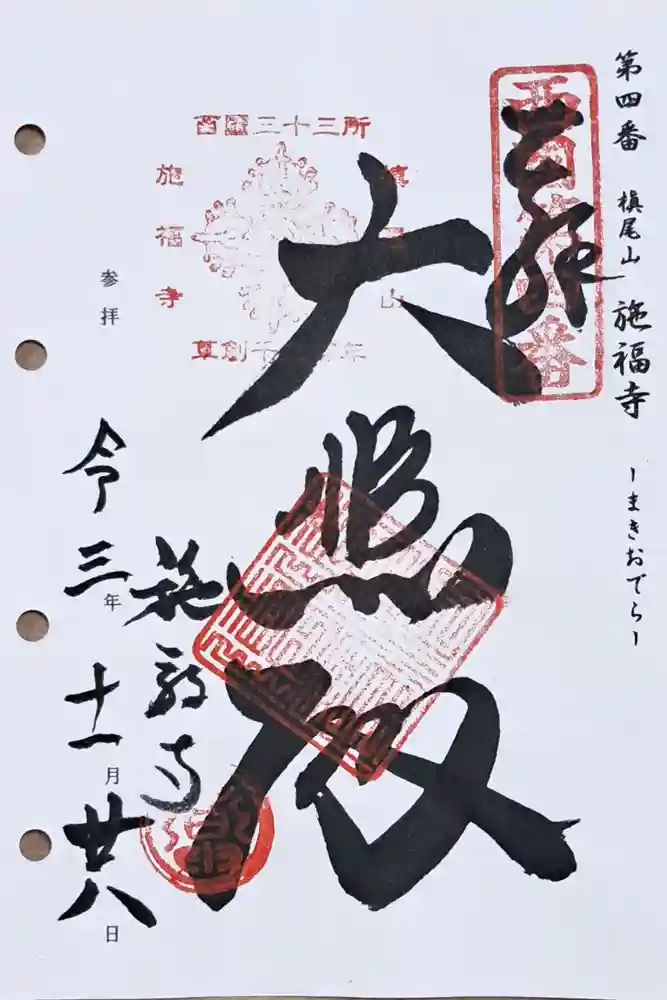 第四番 槇尾山 施福寺 ーまきおでらー
西国第四番
奉拝
大悲殿
施福寺
西國三十三所
施福寺
草創千
年
山
参拝
令三年十一月廿八日